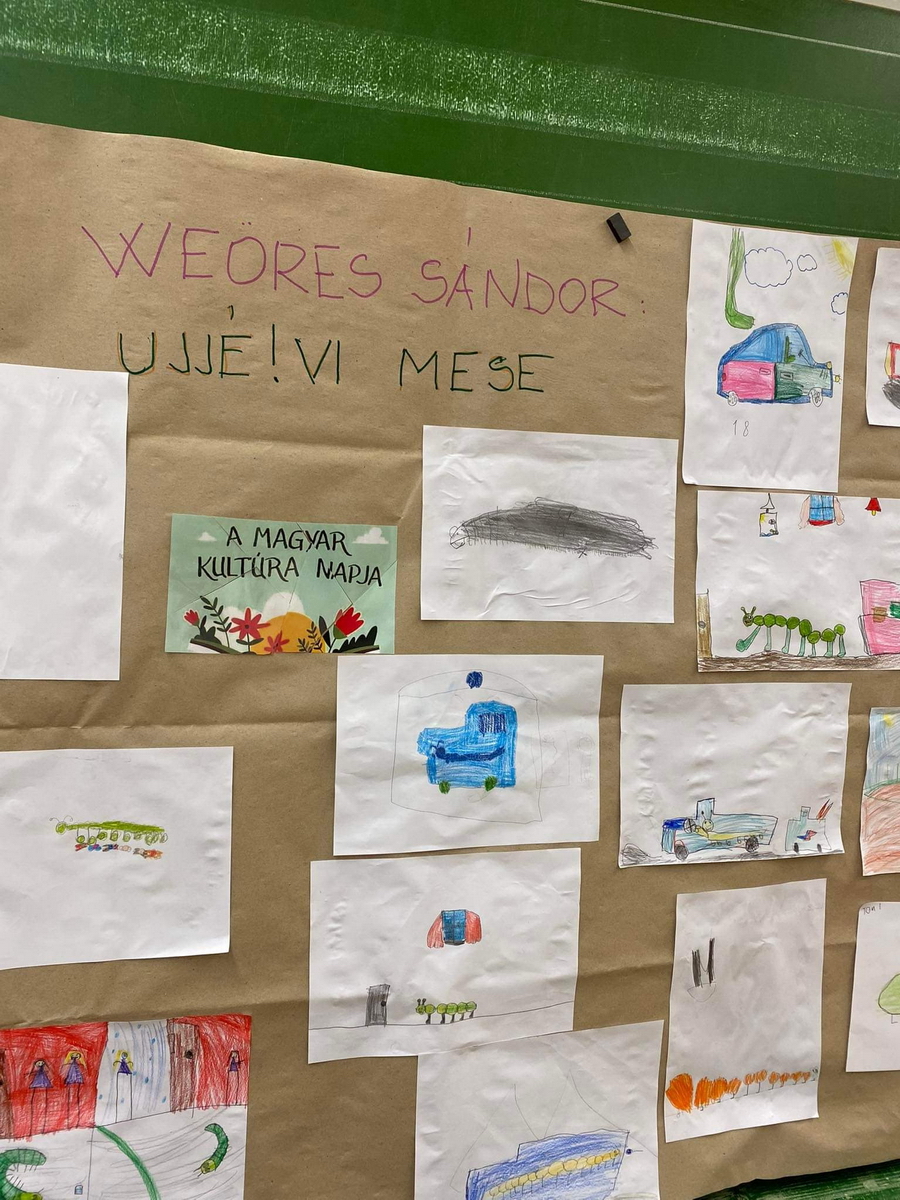 WEÖRES SÁNDOR:
UJJÉ! VI MESE
A MAGYAR
KULTÚRA NAPJA
18